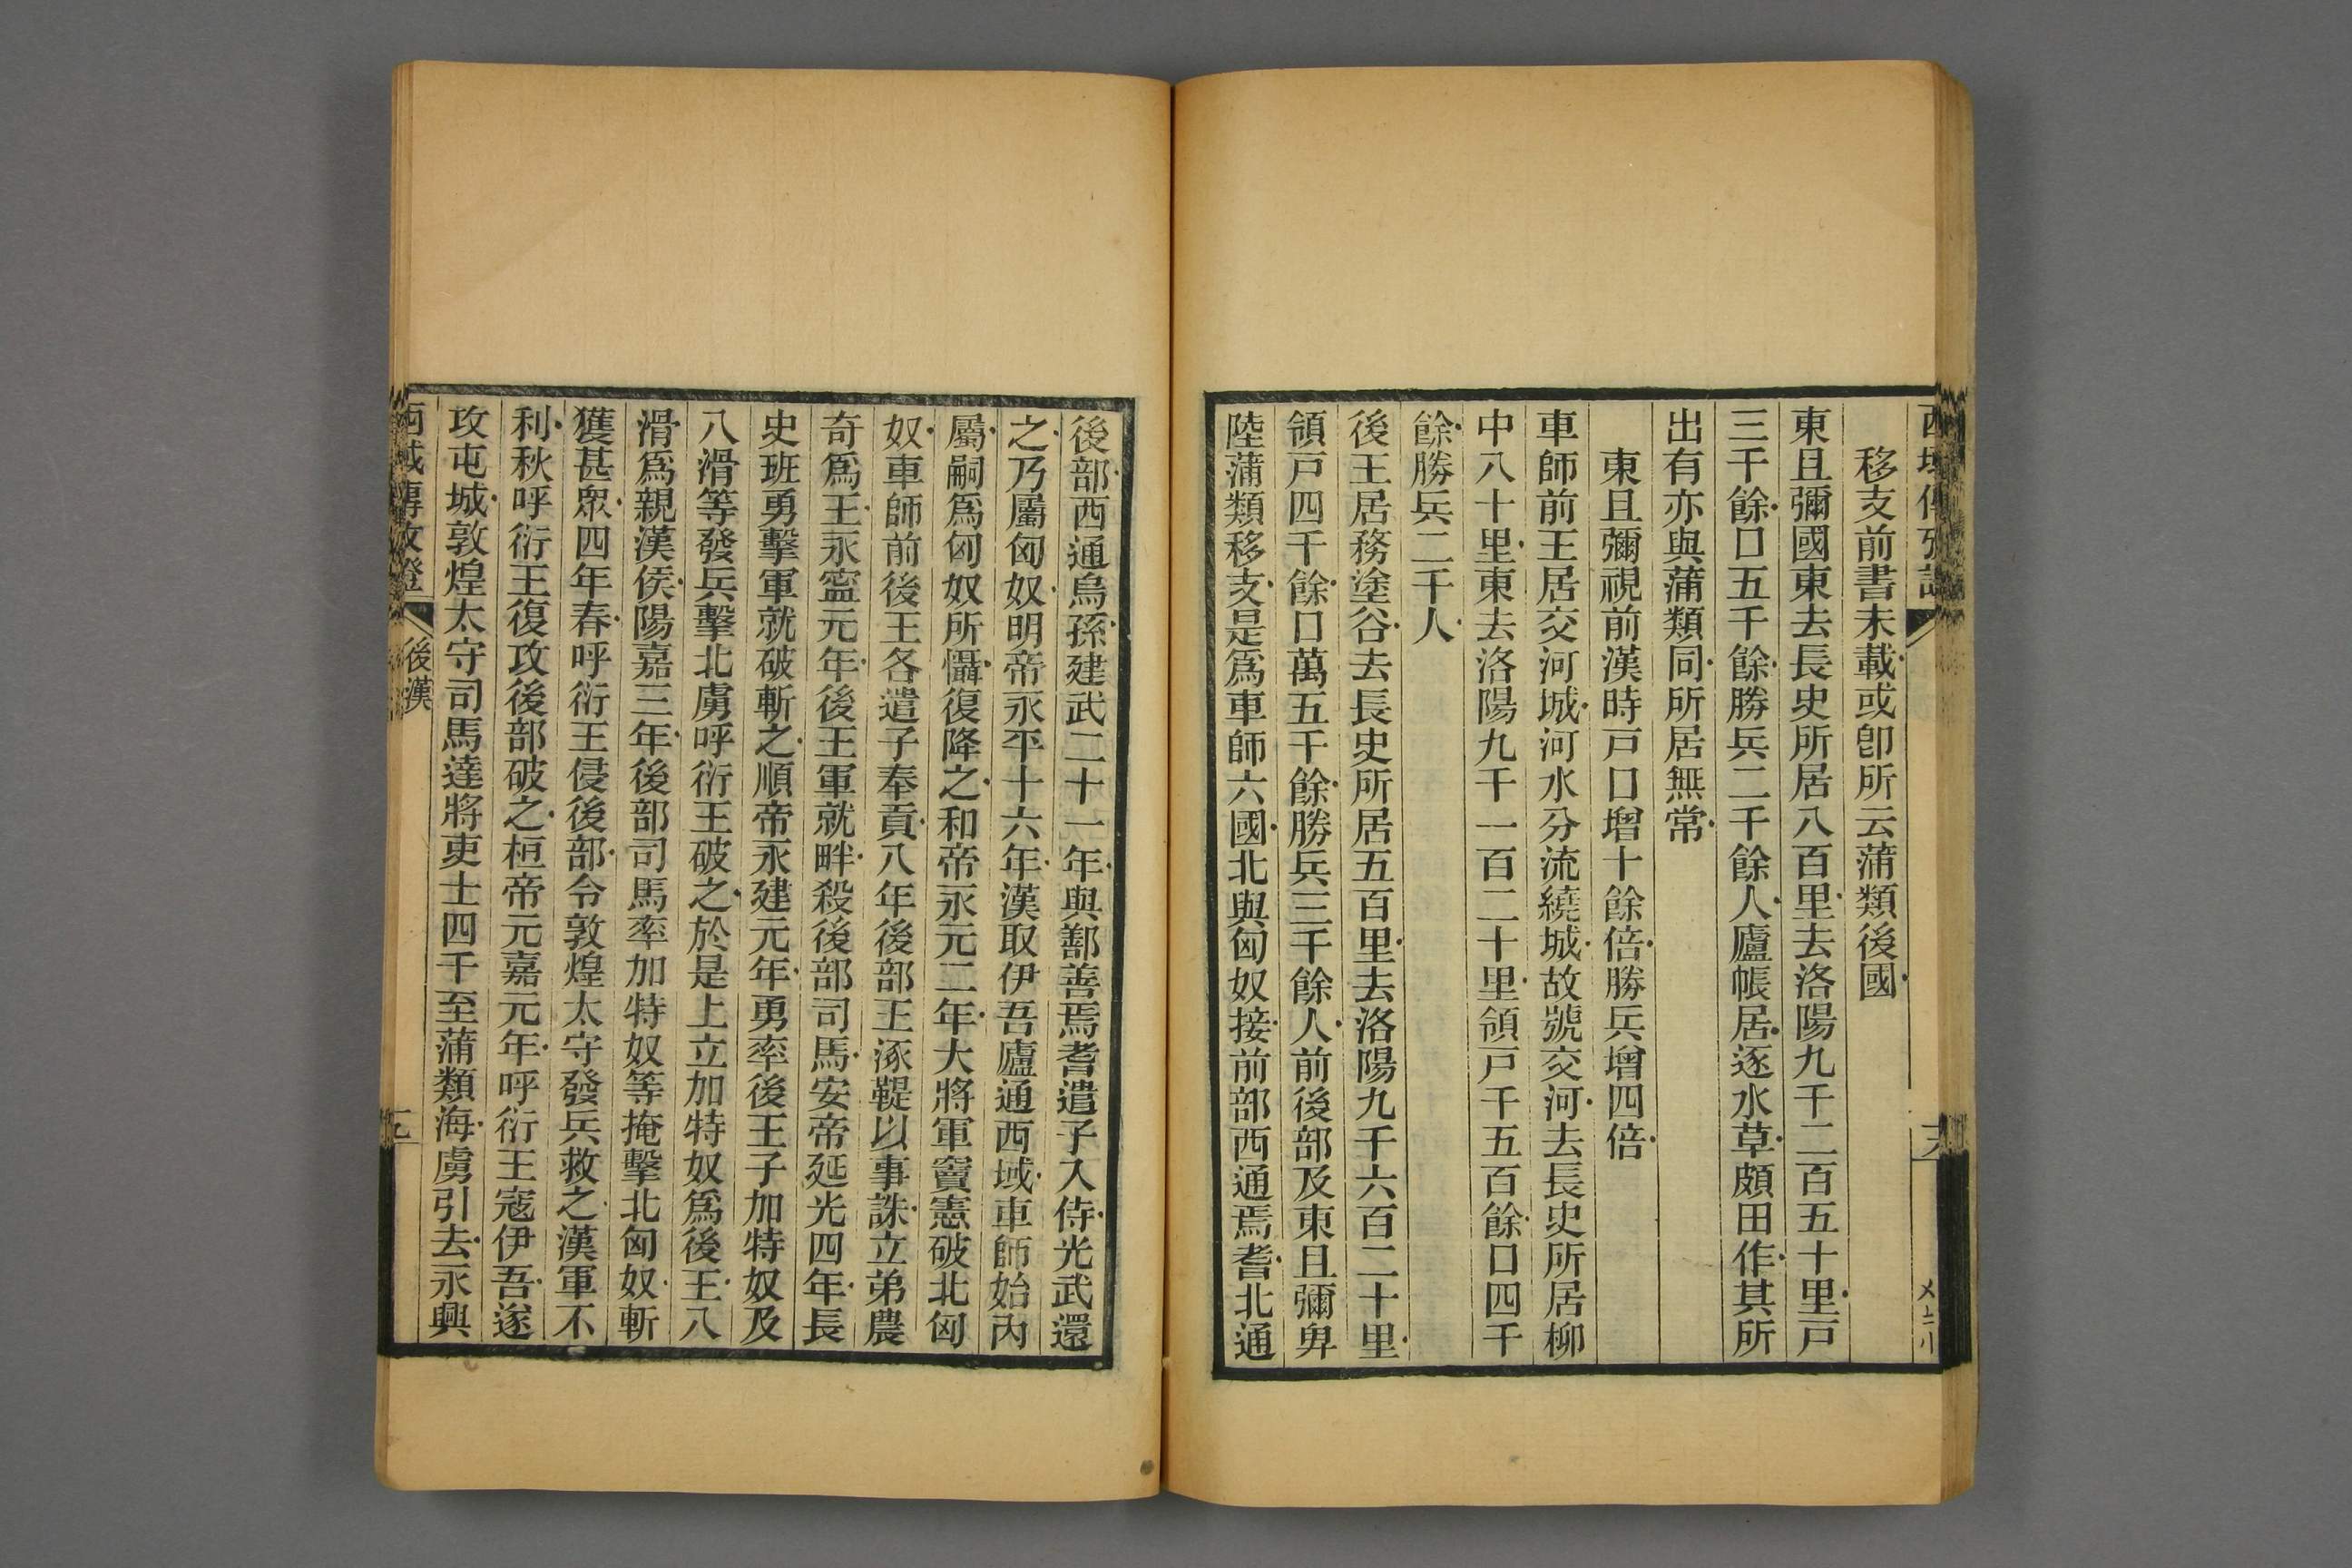 移支前書未載或卽所云蒲類後國
東且彌國東去長史所居八百里去洛陽九千二百五十里戸
三千餘口五千餘勝兵二千餘人廬帳居逐水草頗田作其所
出有亦與蒲類同所居無常
東且彌視前漢時戸口增十餘倍勝兵增四倍
車師前王居交河城河水分流繞城故號交河去長史所居柳
中八十里東去洛陽九千一百二十里領戸千五百餘口四千
餘勝兵二千人
後王居務塗谷去長史所居五百里去洛陽九千六百二十里
領戸四千餘口萬五千餘勝兵三千餘人前後部及東且彌卑
陸蒲類移支是爲車師六國北與匈奴接前部西通焉耆北通
後部西通烏孫建武二十一年與鄯善焉耆遣子入侍光武還
之乃屬匈奴明帝永平十六年漢取伊吾廬通西域車師始內
屬嗣爲匈奴所懾復降之和帝永元二年大將軍竇憲破北匈
奴車師前後王各遣子奉貢八年後部王涿鞮以事誅立弟農
奇爲王永寍元年後王軍就畔殺後部司馬安帝延光四年長
史班勇擊軍就破斬之順帝永建元年勇率後王子加特奴及
八滑等發兵擊北虜呼衍王破之於是上立加特奴爲後王八
滑爲親漢侯陽嘉三年後部司馬率加特奴等掩擊北匈奴斬
獲甚衆四年春呼衍王侵後部令敦煌太守發兵救之漢軍不
利秋呼衍王復攻後部破之桓帝元嘉元年呼衍王寇伊吾遂
攻屯城敦煌太守司馬達將吏士四千至蒲類海虜引去永興
西域傳攷證
後漢